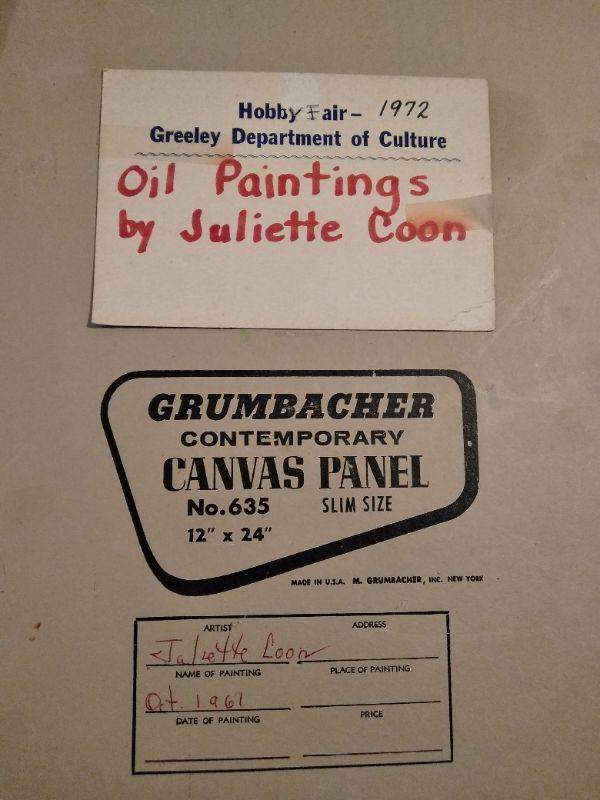 Hobby Fair - 1972
Greeley Department of Culture
Oil Paintings
by Juliette Coon
GRUMBACHER
CONTEMPORARY
CANVAS PANEL
No. 635 SLIM SIZE
12" x 24"
MADE IN U.S.A. M. GRUMBACHER, INC. NEW YORK
ARTIST ADDRESS
Juliette Coon
NAME OF PAINTING PLACE OF PAINTING
Oct. 1967
DATE OF PAINTING PRICE